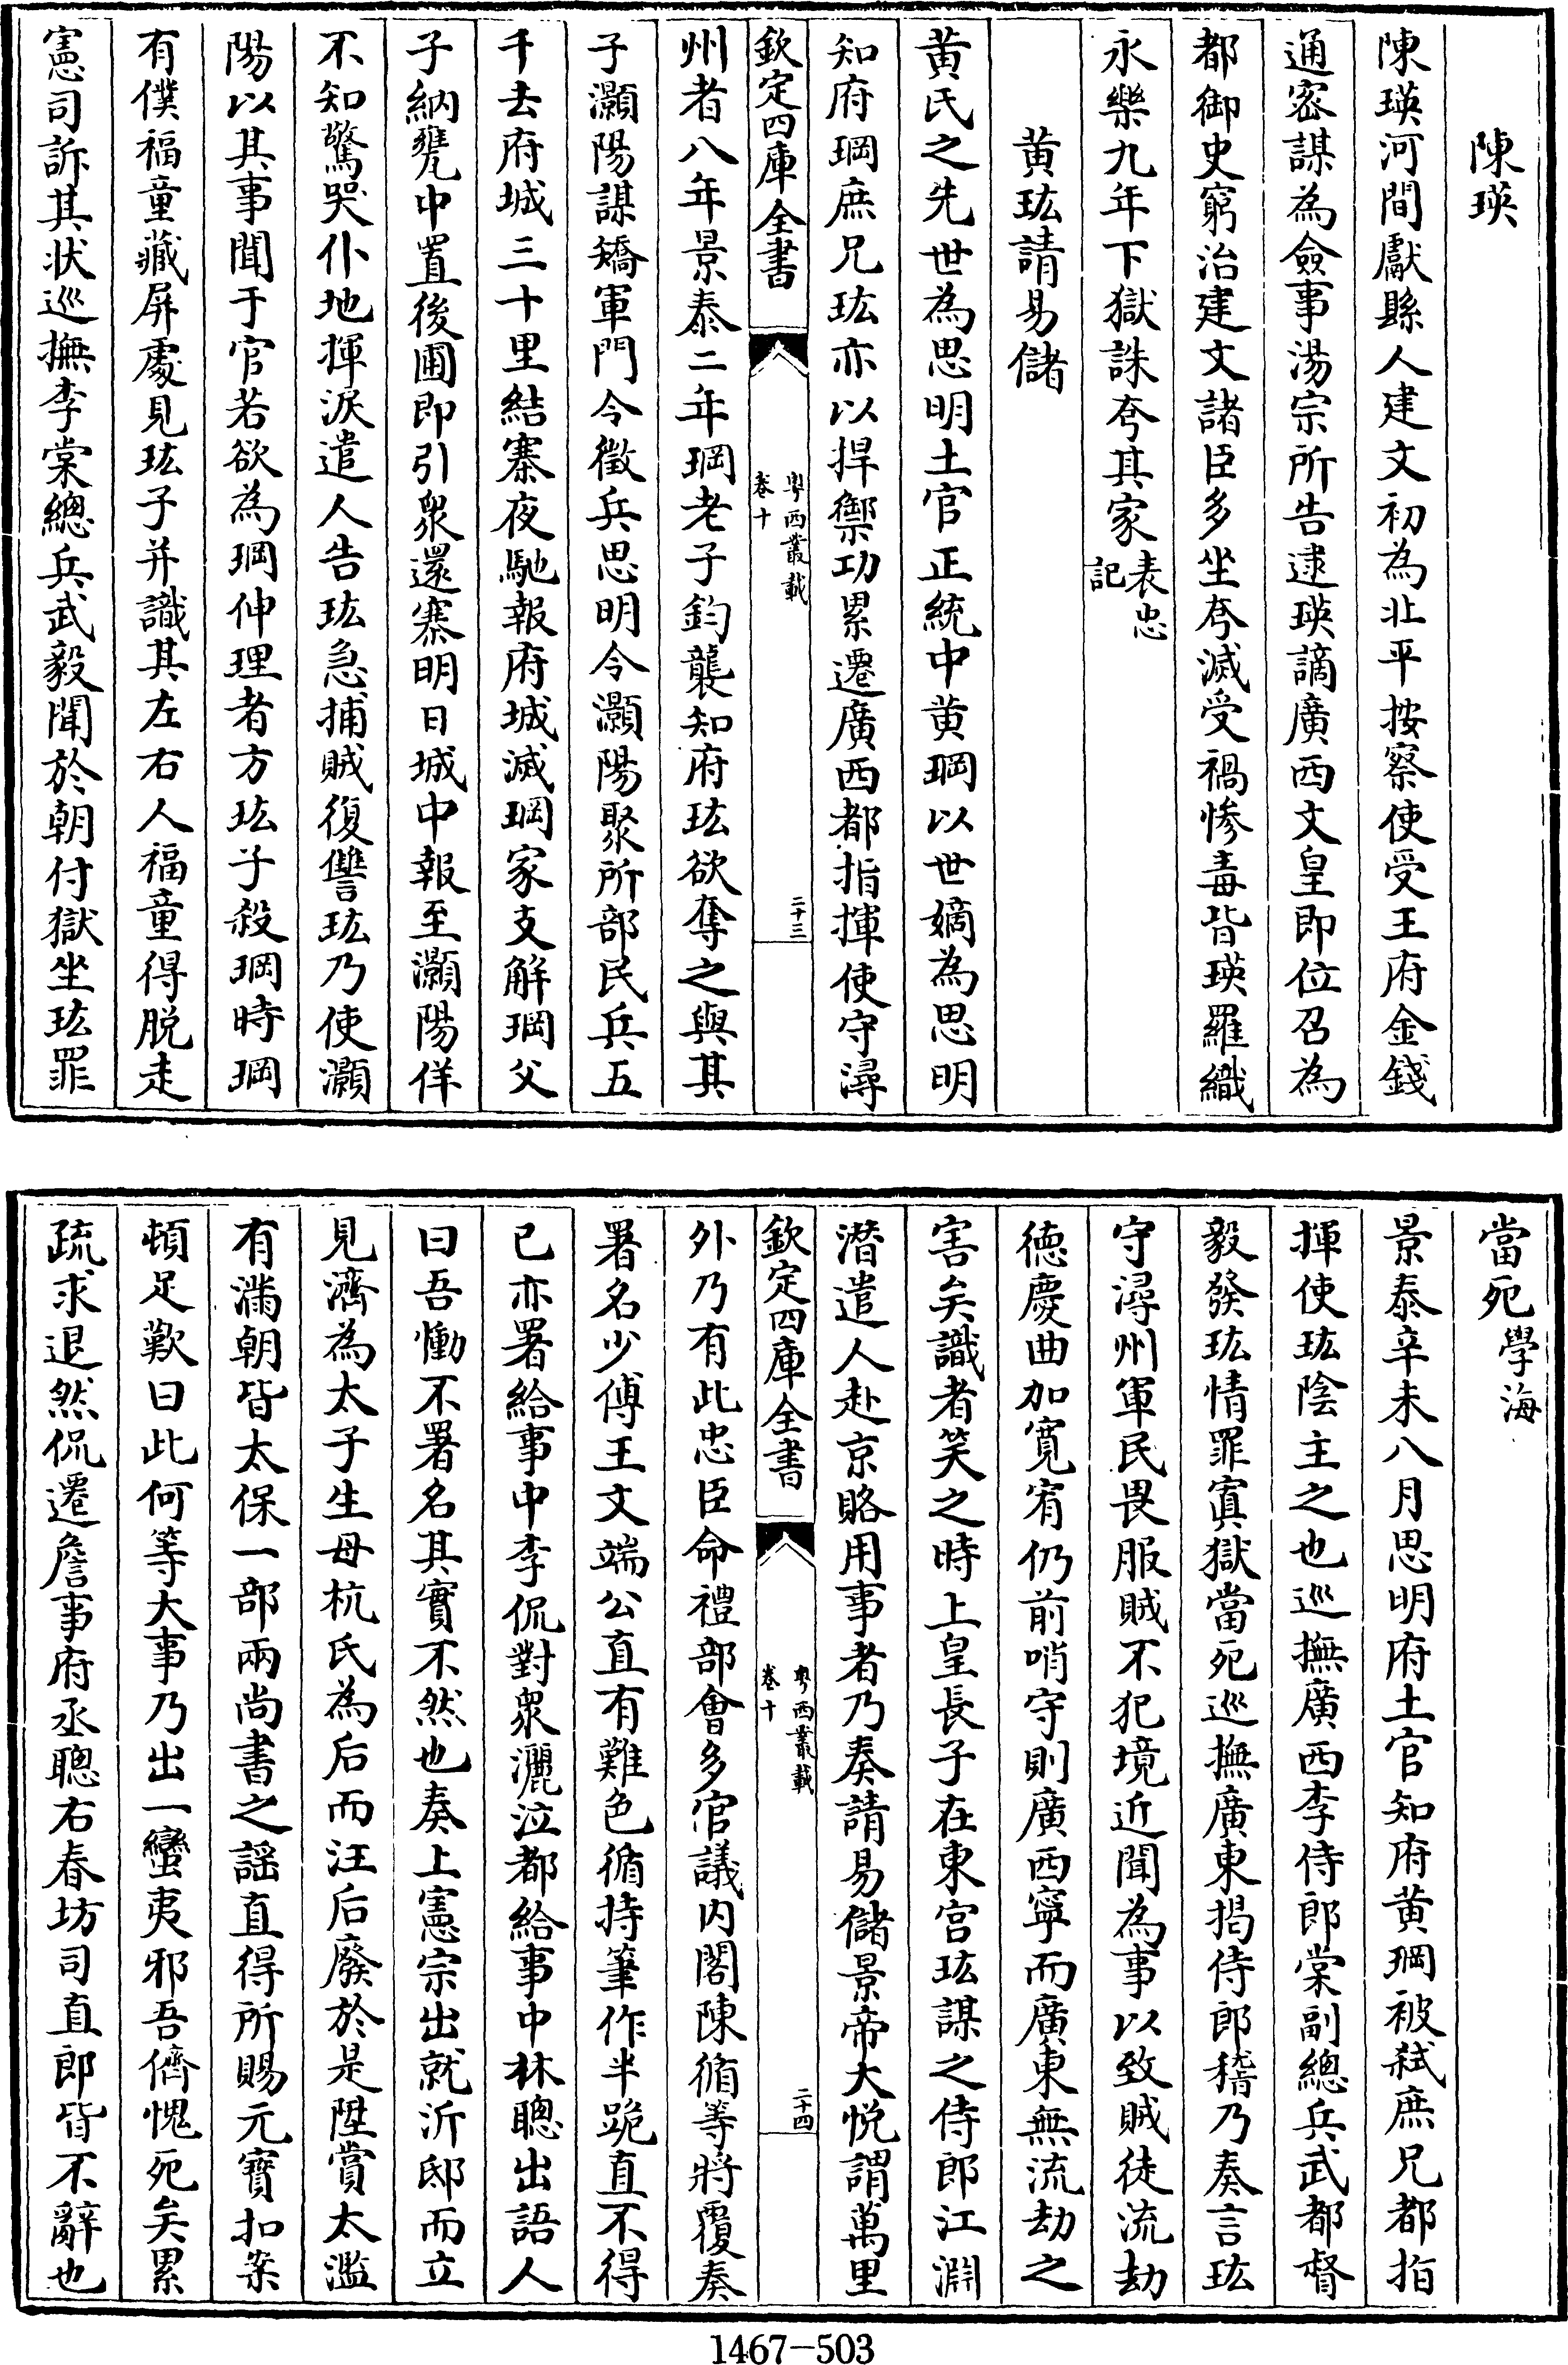 陳瑛
陳瑛河間獻縣人建文初為北平按察使受王府金錢
通宻謀為僉事湯宗所告逮瑛謫廣西文皇即位召為
都御史窮治建文諸臣多坐夸滅受禍惨毒皆瑛羅織
永樂九年下獄誅夸其家表忠
記
黄㺬請易儲
黄氏之先世為思明土官正統中黄㺬以世嫡為思明
知府㺬庶兄㺬亦以捍禦功累遷廣西都指揮使守潯
欽定四庫全書
粤西叢載
卷十
二十三
州者八年景泰二年㺬老子鈞襲知府㺬欲奪之與其
子灝陽謀矯軍門令徵兵思明令灝陽聚所部民兵五
千去府城三十里結寨夜馳報府城滅㺬家支解㺬父
子納甕中置後圃即引衆還寨明日城中報至灝陽佯
不知驚哭仆地揮淚遣人告㺬急捕賊復讐㺬乃使灝
陽以其事聞于官若欲為㺬伸理者方㺬子殺㺬時㺬
有僕福童藏屏處見㺬子并識其左右人福童得脱走
憲司訴其状巡撫李棠總兵武毅聞於朝付獄坐㺬罪
當死學海
景泰辛未八月思明府土官知府黄㺬被弑庶兄都指
揮使㺬陰主之也巡撫廣西李侍郎棠副總兵武都督
毅發㺬情罪寘獄當死巡撫廣東揭侍郎稽乃奏言㺬
守潯州軍民畏服賊不犯境近聞為事以致賊徒流劫
德慶曲加寛宥仍前哨守則廣西寧而廣東無流劫之
害矣識者笑之時上皇長子在東宫㺬謀之侍郎江淵
潜遣人赴京賂用事者乃奏請易儲景帝大悦謂萬里
欽定四庫全書
粤西叢載
卷十
二十四
外乃有此忠臣命禮部會多官議内閣陳循等將覆奏
署名少傅王文端公直有難色循持筆作半跪直不得
已亦署給事中李侃對衆灑泣都給事中林聰出語人
曰吾慟不署名其實不然也奏上憲宗出就沂邸而立
見濟為太子生母杭氏為后而汪后廢於是陞賞太濫
有滿朝皆太保一部兩尚書之謡直得所賜元寶扣案
頓足歎曰此何等大事乃出一蠻夷邪吾儕愧死矣累
疏求退然侃遷詹事府丞聰右春坊司直郎皆不辭也
1467-503